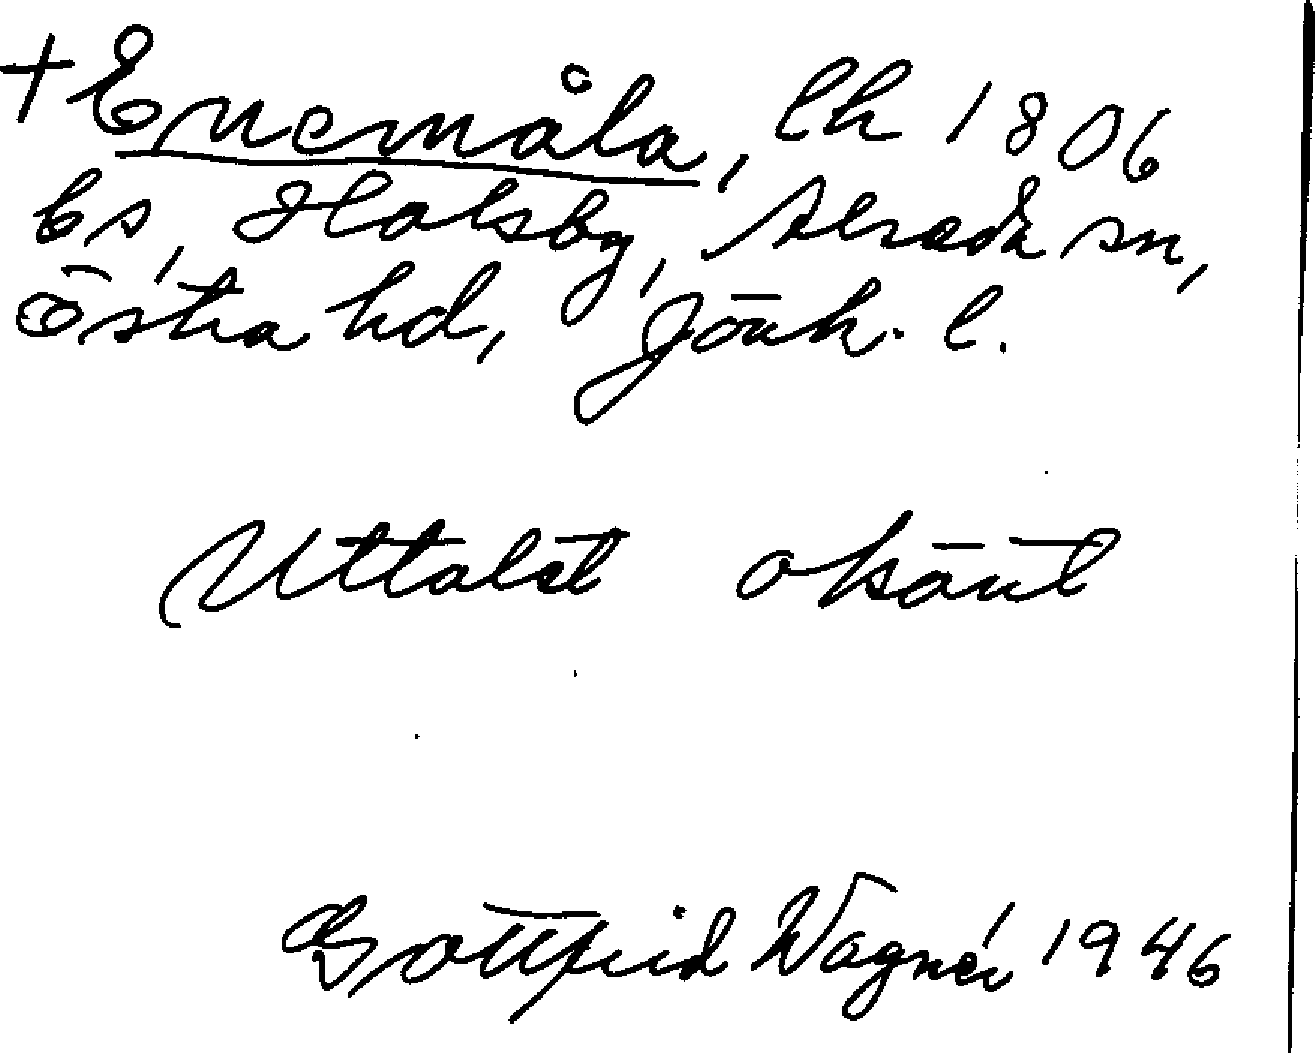 + Enemåla, lh 1806
bs, Holsby, Alseda sn,
Östra hd, Jönk. l.
Uttalet okänt
Gottfrid Wagnér 1946